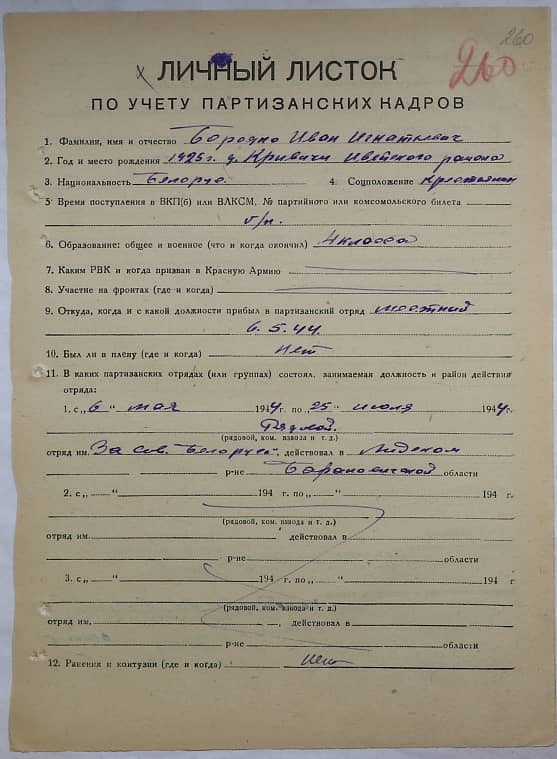 260
260
ЛИЧНЫЙ ЛИСТОК
ПО УЧЕТУ ПАРТИЗАНСКИХ КАДРОВ
1. Фамилия, имя и отчество Иван Игнатьевич
2. Год и место рождения 1925 г. д. Кривичи Ивьевского района
3. Национальность Белорус. 4. Соцположение Крестьянин
5. Время поступления в ВКП(б) или ВЛКСМ, № партийного или комсомольского билета
б/п.
6. Образование: общее и военное (что и когда окончил) 4 класса
7. Каким РВК и когда призван в Красную Армию
8. Участие на фронтах (где и когда)
9. Откуда, когда и с какой должности прибыл в партизанский отряд местный
6.5.44.
10. Был ли в плену (где и когда) Нет
11. В каких партизанских отрядах (или группах) состоял, занимаемая должность и район действия
отряда:
1. с „6" мая 1944 г. по „25" июля 1944 г.
Рядовой.
(рядовой, ком. взвода и т. д.)
отряд им. За Сов. Беларусь, действовал в Лидском
р-не Барановичской области
2. с „ " 194 г. по „ " 194 г.
(рядовой, ком. взвода и т. д.)
отряд им. действовал в
р-не области
3. с „ " 194 г. по „ " 194 г
(рядовой, ком. взвода и т. д.)
отряд им. действовал в
р-не области
12. Ранения и контузии (где и когда) Нет